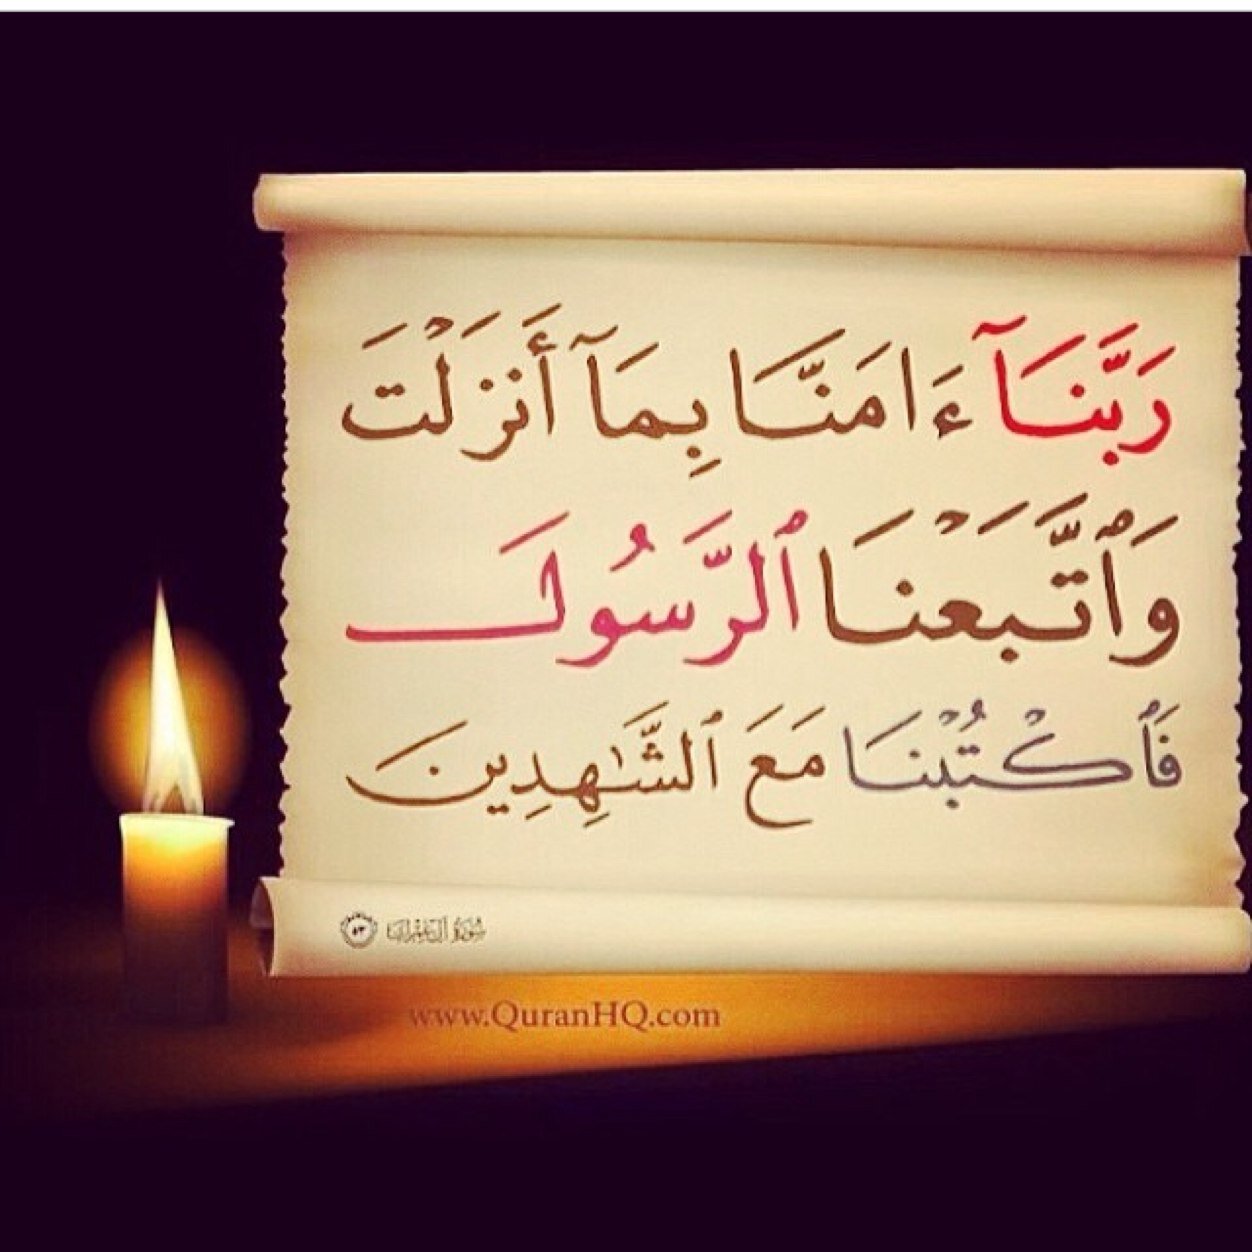 رَبَّنَآ ءَامَنَّا بِمَآ أَنزَلْتَ
وَٱتَّبَعْنَا ٱلرَّسُولَ
فَٱكْتُبْنَا مَعَ ٱلشَّٰهِدِينَ
سُورَةُ آلِ عِمْرَانَ ٥٣
www.QuranHQ.com